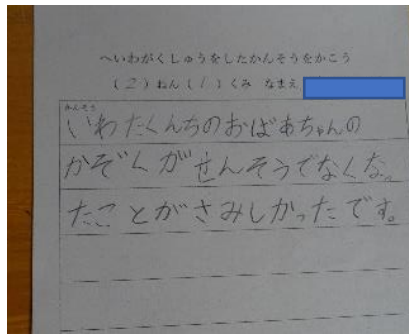 へいわがくしゅうをしたかんそうをかこう
(2)ねん(1)くみ なまえ
かんそう
いわたくんちのおばあちゃんの
かぞくがせんそうでなくなっ
たことがさみしかったです。